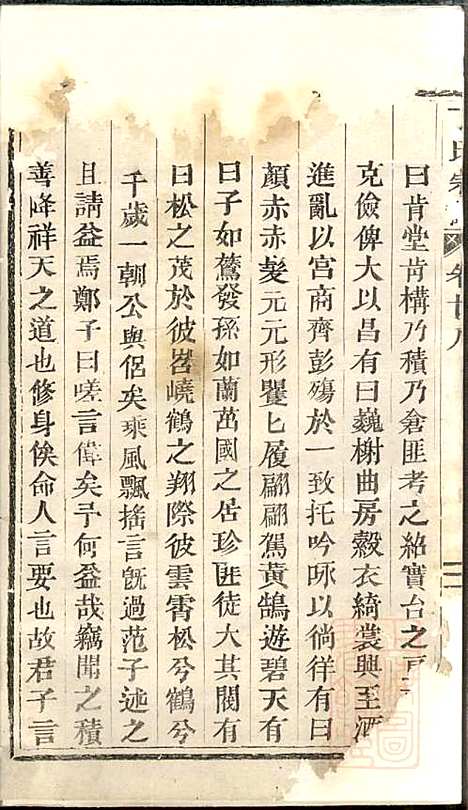 氏宗
卷廿八
曰肯堂肯構乃積乃倉匪考之紹實台之
克儉俾大以昌有曰巍榭曲房縠衣綺裳興至酒
進亂以宮商齊彭殤於一致托吟咏以徜徉有曰
顏赤赤髮元元形矍匕履翩翩駕黃鵠遊碧天有
曰子如驚發孫如蘭萬國之居珍匪徒大其閥有
曰松之茂於彼岧嶢鶴之翔際彼雲霄松兮鶴兮
千歲一朝公與侶矣乘風飄搖言旣過范子述之
且請益焉鄭子曰嗟言偉矣予何益哉竊聞之積
善降祥天之道也修身俟命人言要也故君子言